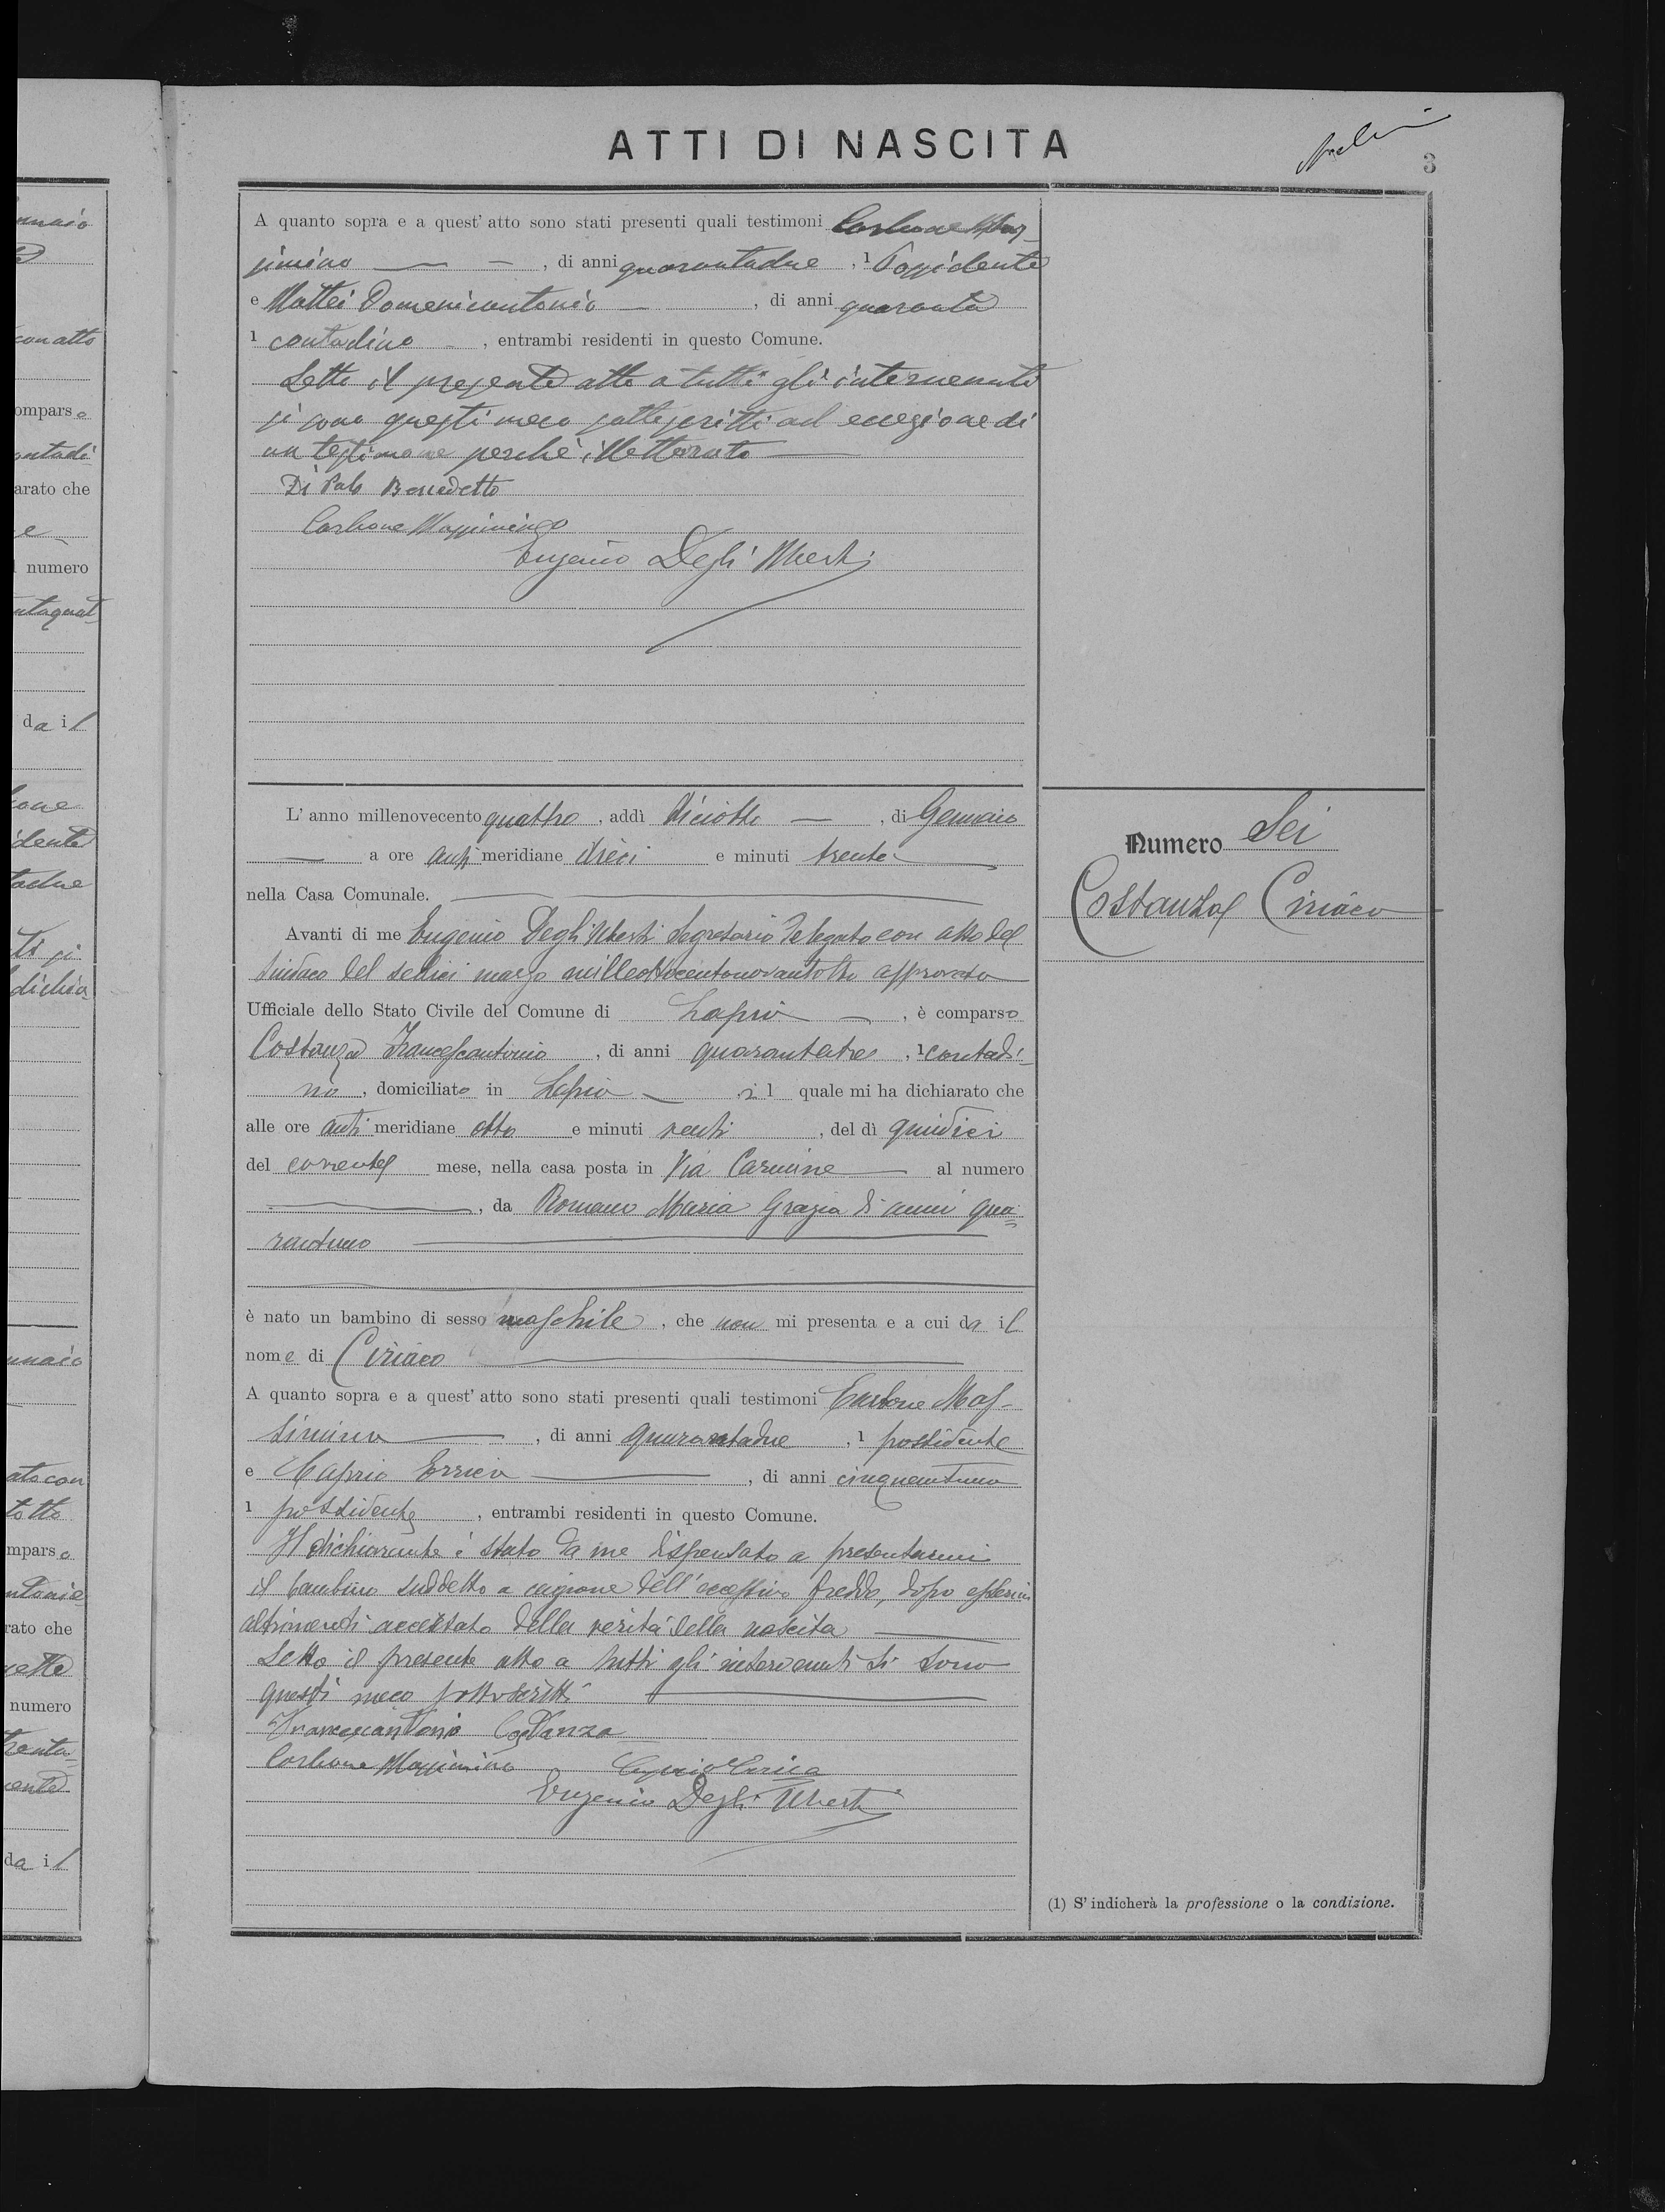 ATTI DI NASCITA
3
A quanto sopra e a quest' atto sono stati presenti quali testimoni Carbone Mas-
simino , di anni quarantadue , 1 Possidente
e Mattei Domenicantonio , di anni quaranta
1 contadino , entrambi residenti in questo Comune.
Letto il presente atto a tutti gli intervenuti
si sono questi meco sottoscritti ad eccezione di
un testimone perchè illetterato
Di Palo Benedetto
Carbone Massimino
Eugenio Degli Uberti
L' anno millenovecento quattro , addì diciotto , di Gennaio
a ore anti meridiane dieci e minuti trenta
nella Casa Comunale.
Avanti di me Eugenio Degli Uberti Segretario Delegato con atto del
Sindaco del sedici marzo milleottocentonovantotto approvato
Ufficiale dello Stato Civile del Comune di Lapio , è comparso
Costanza Francescantonio , di anni quarantatre , 1 contadi-
no , domiciliato in Lapio il quale mi ha dichiarato che
alle ore anti meridiane otto e minuti venti , del dì quindici
del corrente mese, nella casa posta in Via Carmine al numero
, da Romano Maria Grazia di anni qua-
rantuno
è nato un bambino di sesso maschile , che non mi presenta e a cui da il
nome di Ciriaco
A quanto sopra e a quest' atto sono stati presenti quali testimoni Carbone Mas-
simino , di anni quarantadue , 1 possidente
e Caprio Errico , di anni cinquantuno
1 possidente , entrambi residenti in questo Comune.
Il dichiarante è stato da me dispensato a presentarmi
il bambino suddetto a cagione dell'eccessivo freddo, dopo essermi
altrimenti accertato della verità della nascita
Letto il presente atto a tutti gli intervenuti si sono
questi meco sottoscritti
Francescantonio Costanza
Carbone Massimino Caprio Errico
Eugenio Degli Uberti
Numero Sei
Costanza Ciriaco
(1) S' indicherà la professione o la condizione.